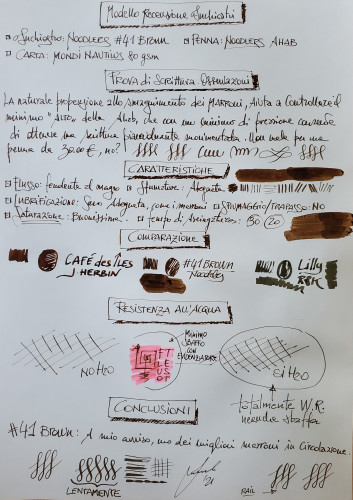 Modello Recensione Inchiostri
Inchiostro: NOODLERS #41 BROWN PENNA: NOODLERS AHAB
CARTA: MONDI NAUTILUS 80 gsm
PROVA DI SCRITTURA
LA naturale propensione allo smagrimento dei MARRONI, AIUTA A CONTROLLARE il
minimo "della Ahab, che con un minimo di pressione concede
di ottenere una scrittura piacevolmente movimentata. Non male per una
penna da 30.00 €, no?
CARATTERISTICHE
Flusso: tendente al magro Sfumature: Adeguata
Lubrificazione: Adeguata, come i marroni SPIUMAGGIO/TRAPASSO: NO
Saturazione: Buonissima tempo di Asciugatura: 30 (20)
COMPARAZIONE
CAFÉ des ÎLES
J. HERBIN
#41 BROWN
Noodlers
Lilly
RESISTENZA ALL'ACQUA
NO H2O
MINIMO
SBAFFO
CON
EVIDENZIATORE
SI H2O
totalmente W.R.
neanche sbaffa
CONCLUSIONI
#41 BROWN: A mio avviso, uno dei migliori marroni in circolazione.
LENTAMENTE
'21
RAIL